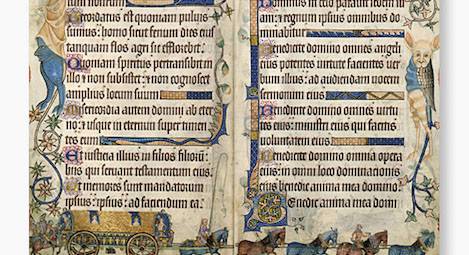 Recordatus est quoniam puluis
sumus: homo sicut fenum dies eius
tanquam flos agri sic efflorebit
Quoniam spiritus pertransibit in
illo et non subsistet: et non cognoscet
amplius locum suum
Misericordia autem domini: ab eter
no: et usque in eternum super timen
tes eum
Et iustitia illius in filios filioru
his qui seruant testamentum eius
Et memores sunt mandatorum
ipsius: ad faciendum ea.
in celo parauit sedem
et regnum ipsius omnibus do
minabitur
Benedicite domino omnes angeli
eius potentes uirtute facientes uer
bum illius: ad audiendam uocem
sermonum eius
Benedicite domino omnes uirtutes
eius: ministri eius qui facitis
uoluntatem eius
Benedicite domino omnia opera
eius: in omni loco dominationis
eius benedic anima mea domino
Benedic anima mea domi